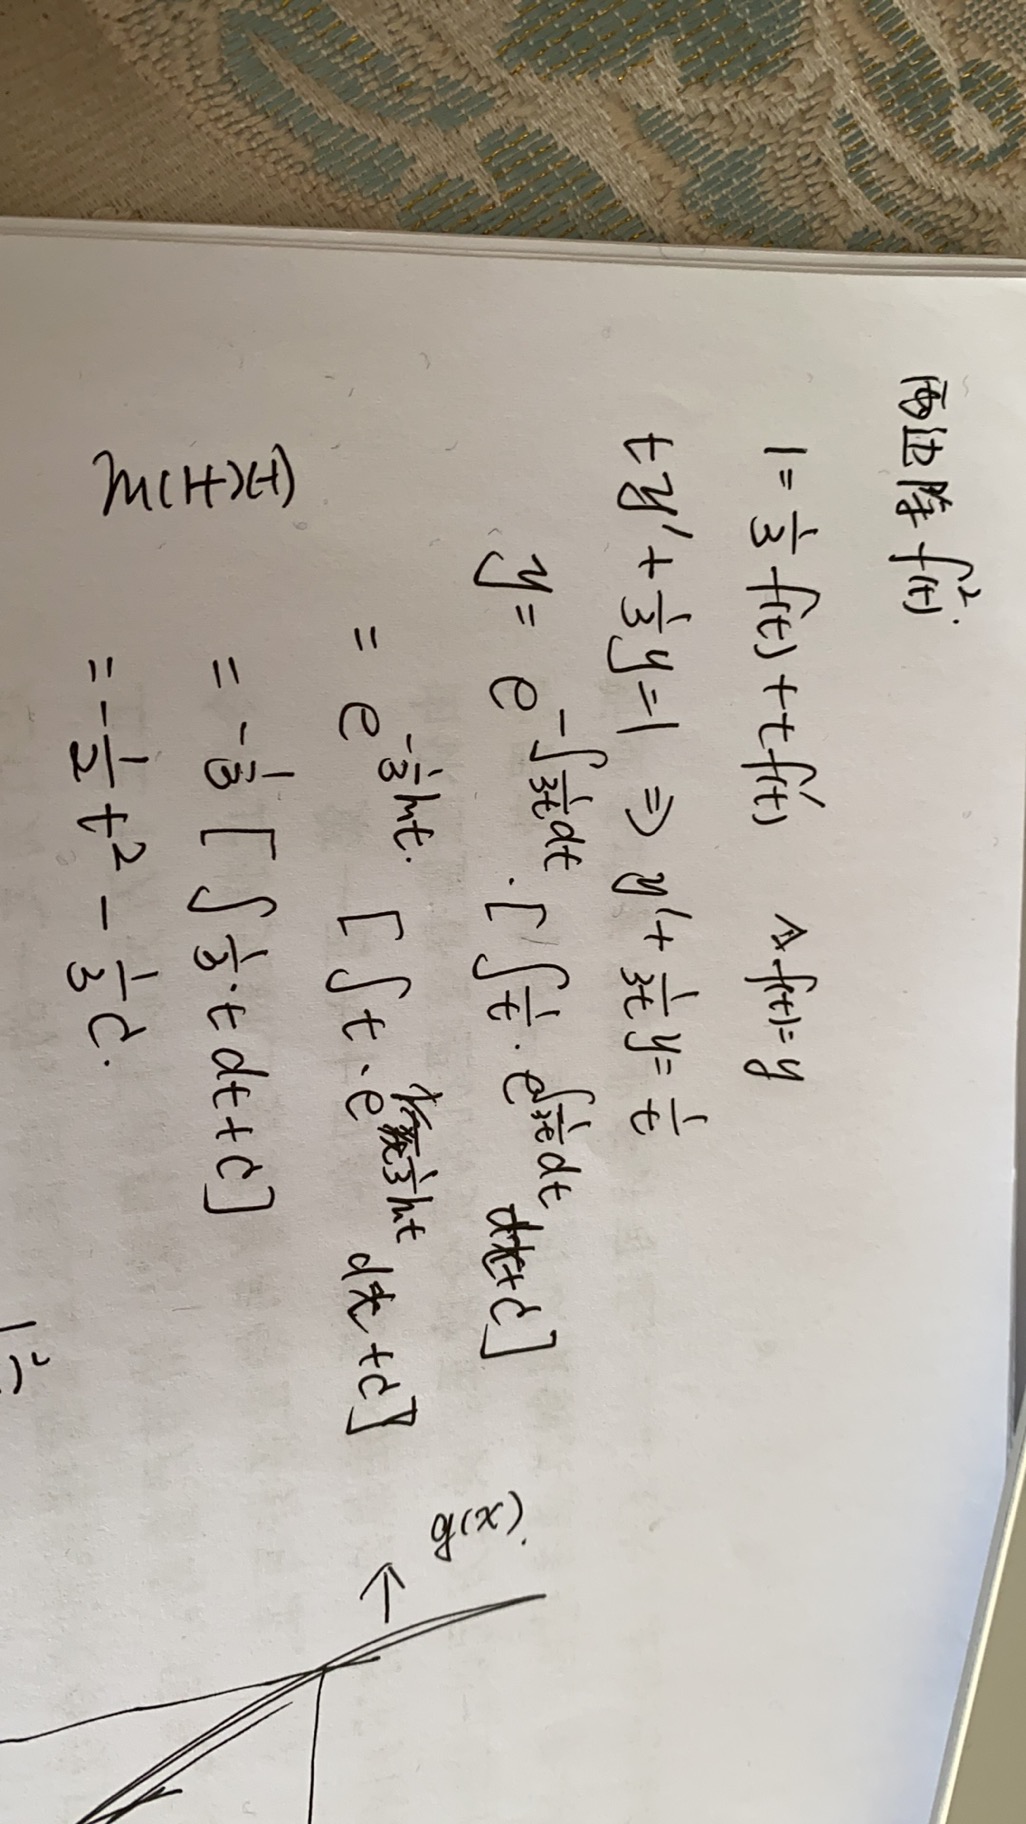 两边除 f²(t).
1 = 1/3 f(t) + t f'(t) 令 f(t) = y
ty' + 1/3 y = 1 ⇒ y' + 1/3t y = 1/t
y = e^{-∫ 1/3t dt} · [∫ 1/t · e^{∫ 1/3t dt} dt + C]
= e^{-1/3 lnt} · [∫ t · e^{1/3 lnt} dt + C]
= -1/3 [∫ 1/3 · t dt + C]
= -1/2 t² - 1/3 C.
g(x).